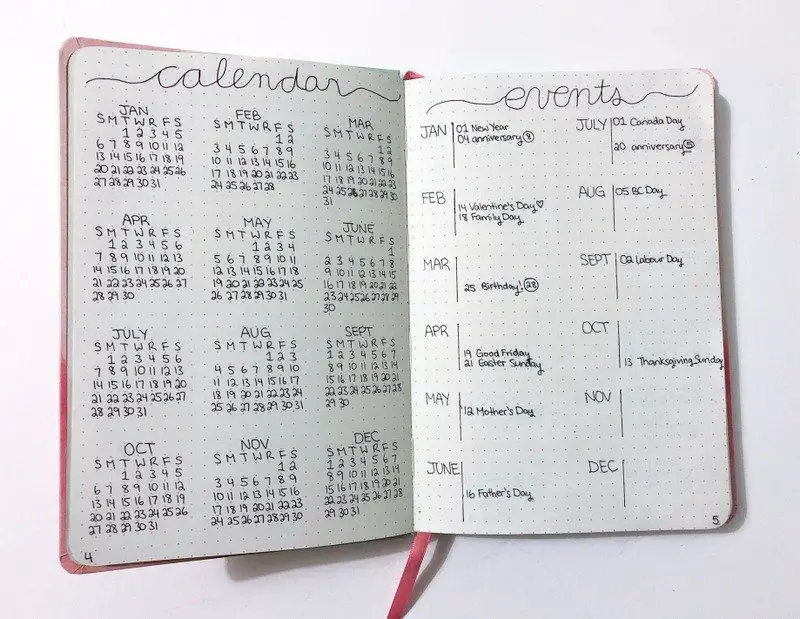 calendar
JAN
S M T W R F S
1 2 3 4 5
6 7 8 9 10 11 12
13 14 15 16 17 18 19
20 21 22 23 24 25 26
27 28 29 30 31
FEB
S M T W R F S
1 2
3 4 5 6 7 8 9
10 11 12 13 14 15 16
17 18 19 20 21 22 23
24 25 26 27 28
MAR
S M T W R F S
1 2
3 4 5 6 7 8 9
10 11 12 13 14 15 16
17 18 19 20 21 22 23
24 25 26 27 28 29 30
31
APR
S M T W R F S
1 2 3 4 5 6
7 8 9 10 11 12 13
14 15 16 17 18 19 20
21 22 23 24 25 26 27
28 29 30
MAY
S M T W R F S
1 2 3 4
5 6 7 8 9 10 11
12 13 14 15 16 17 18
19 20 21 22 23 24 25
26 27 28 29 30 31
JUNE
S M T W R F S
1
2 3 4 5 6 7 8
9 10 11 12 13 14 15
16 17 18 19 20 21 22
23 24 25 26 27 28 29
30
JULY
S M T W R F S
1 2 3 4 5 6
7 8 9 10 11 12 13
14 15 16 17 18 19 20
21 22 23 24 25 26 27
28 29 30 31
AUG
S M T W R F S
1 2 3
4 5 6 7 8 9 10
11 12 13 14 15 16 17
18 19 20 21 22 23 24
25 26 27 28 29 30 31
SEPT
S M T W R F S
1 2 3 4 5 6 7
8 9 10 11 12 13 14
15 16 17 18 19 20 21
22 23 24 25 26 27 28
29 30
OCT
S M T W R F S
1 2 3 4 5
6 7 8 9 10 11 12
13 14 15 16 17 18 19
20 21 22 23 24 25 26
27 28 29 30 31
NOV
S M T W R F S
1 2
3 4 5 6 7 8 9
10 11 12 13 14 15 16
17 18 19 20 21 22 23
24 25 26 27 28 29 30
DEC
S M T W R F S
1 2 3 4 5 6 7
8 9 10 11 12 13 14
15 16 17 18 19 20 21
22 23 24 25 26 27 28
29 30 31
4
events
JAN
01 New Year
04 anniversary 8
FEB
14 Valentine's Day ♡
18 Family Day
MAR
25 Birthday! 28
APR
19 Good Friday
21 Easter Sunday
MAY
12 Mother's Day
JUNE
16 Father's Day
JULY
01 Canada Day
20 anniversary
AUG
05 BC Day
SEPT
02 Labour Day
OCT
13 Thanksgiving Sunday
NOV
DEC
5